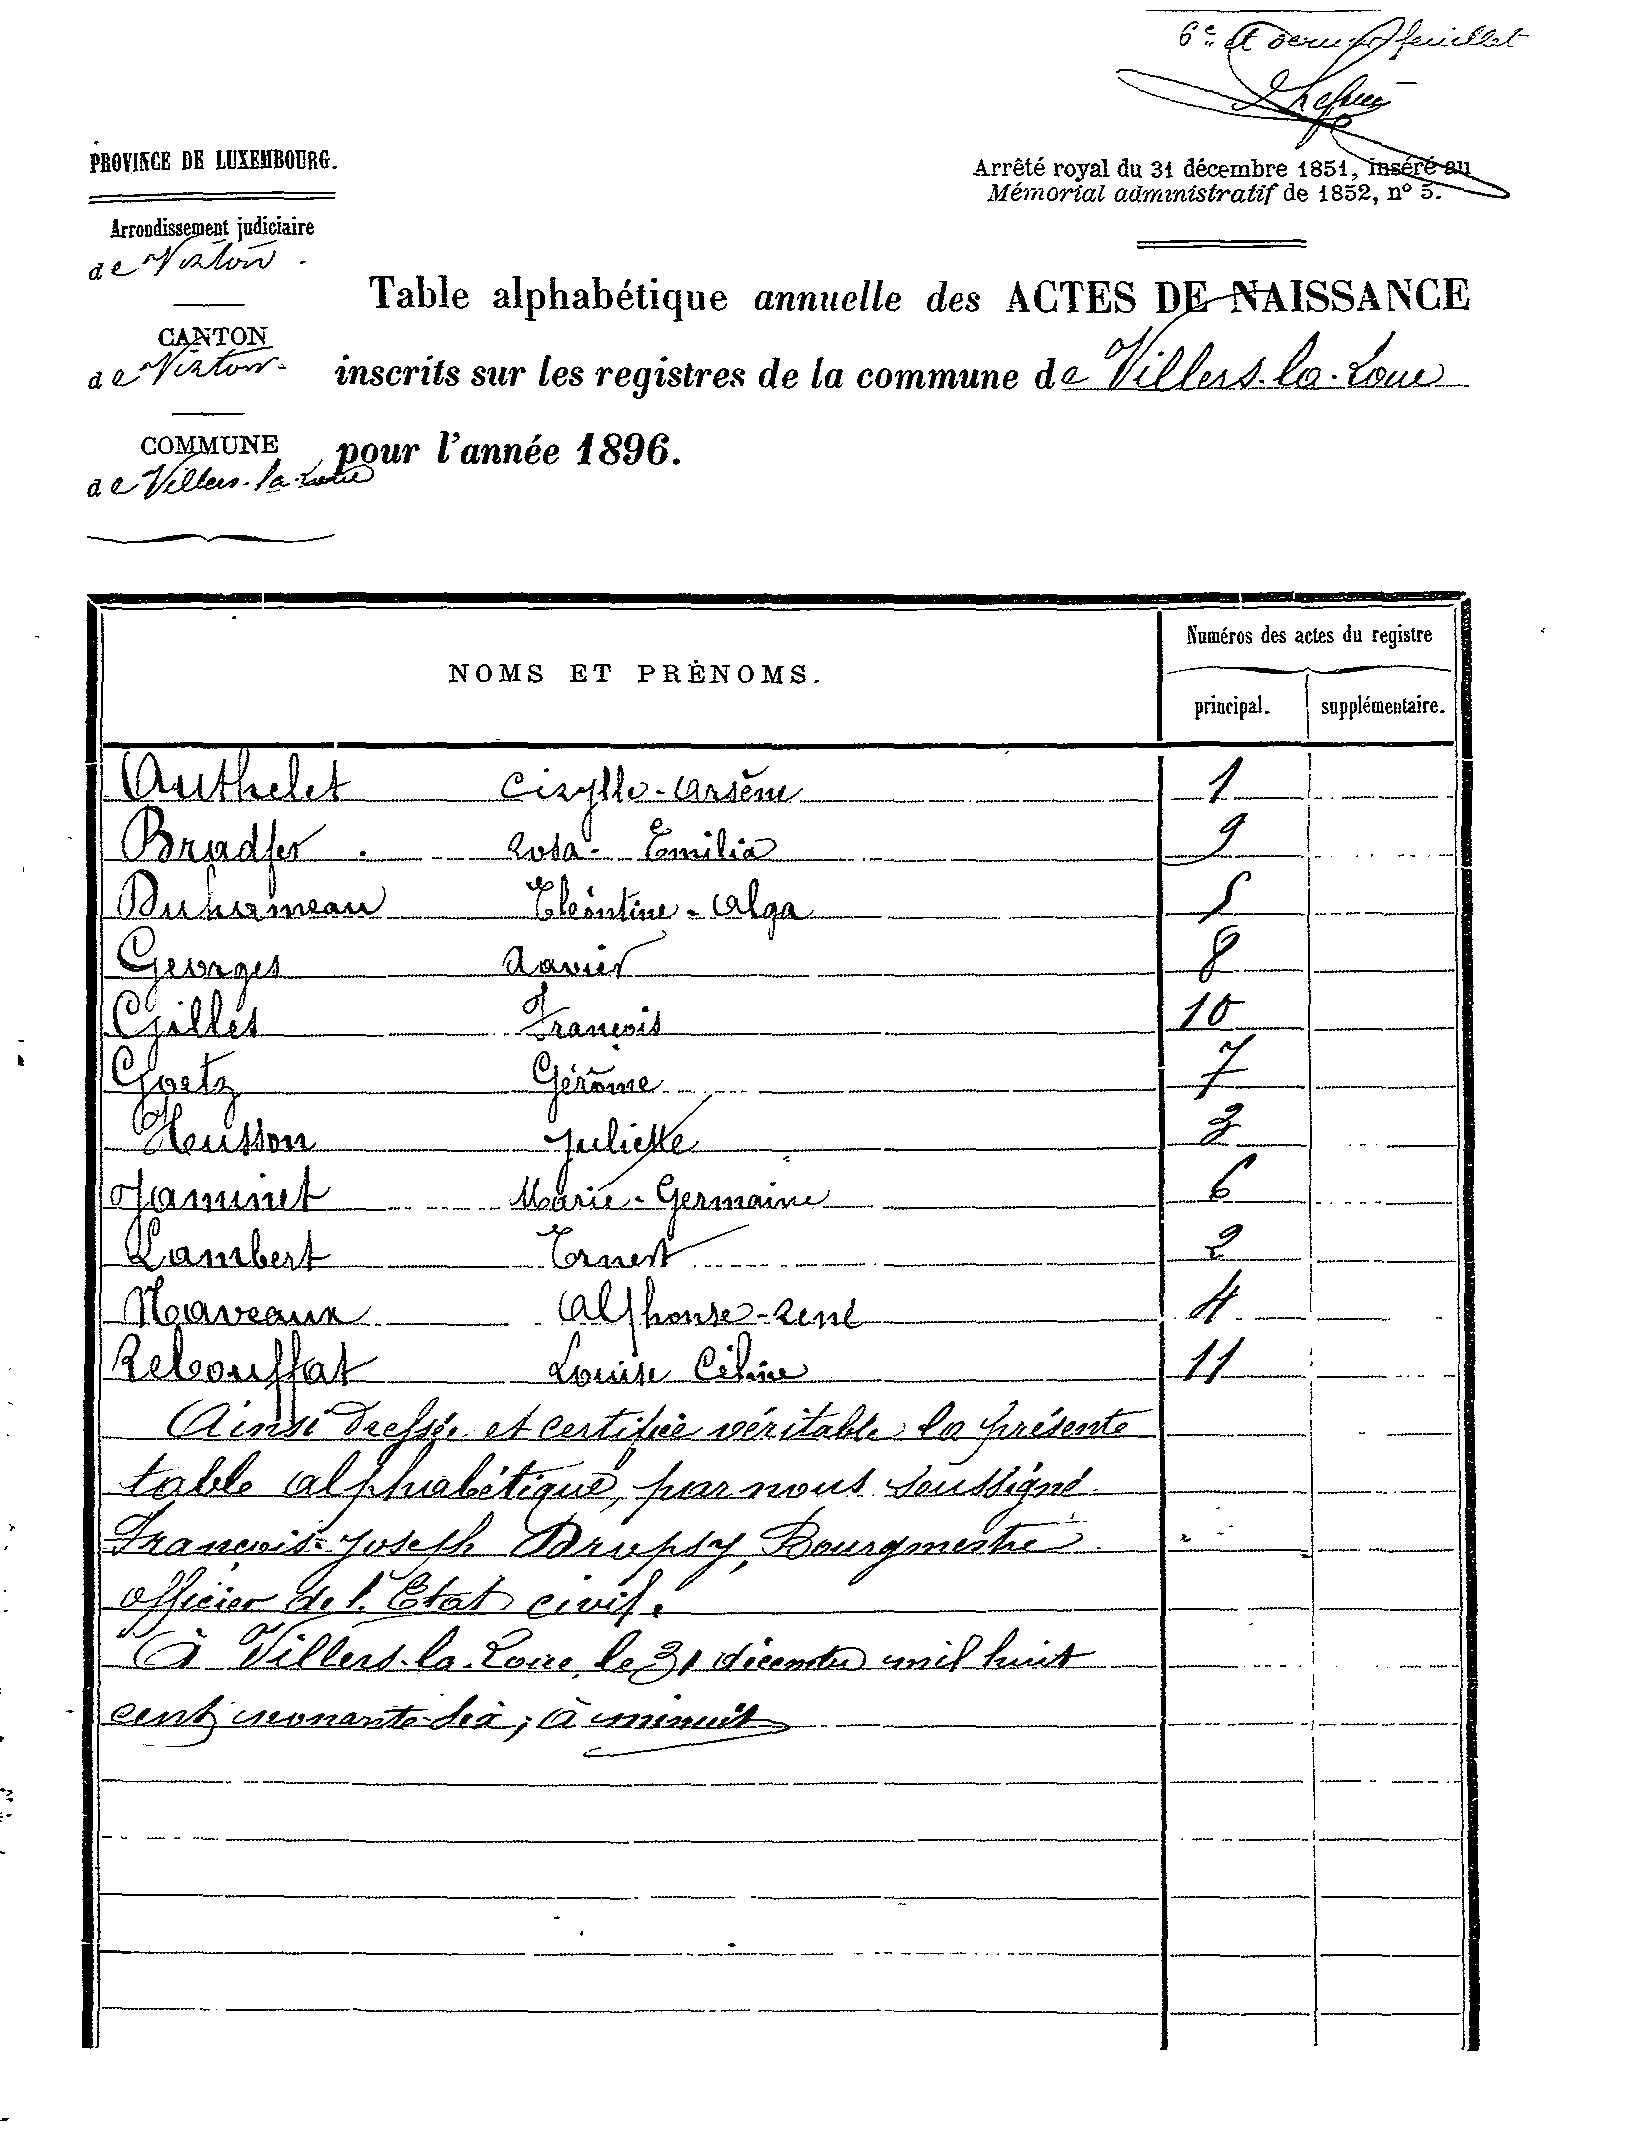 6e et dernier feuillet
PROVINCE DE LUXEMBOURG.
Arrêté royal du 31 décembre 1851, inséré au
Mémorial administratif de 1852, nº 5.
Arrondissement judiciaire
de Virton.
CANTON
de Virton.
COMMUNE
de Villers-la-Loue
Table alphabétique annuelle des ACTES DE NAISSANCE
inscrits sur les registres de la commune de Villers-la-Loue
pour l'année 1896.
NOMS ET PRÉNOMS.
Numéros des actes du registre
principal. supplémentaire.
Authelet Cizylle-Arsène 1
Bradfer Rosa-Emilia 9
Eléontine-Alga 5
Georges Xavier 8
Gilles François 10
Goetz Gérôme 7
Husson Juliette 3
Jaminet Marie-Germaine 6
Lambert Ernest 2
Naveaux Alphonse-René 4
Rebouffat Louise Céline 11
Ainsi dressée et certifiée véritable la présente
table alphabétique, par nous soussigné
François-Joseph Drupsy, Bourgmestre
officier de l'Etat civil.
à Villers-la-Loue, le 31 décembre mil huit
cent nonante-six, à minuit